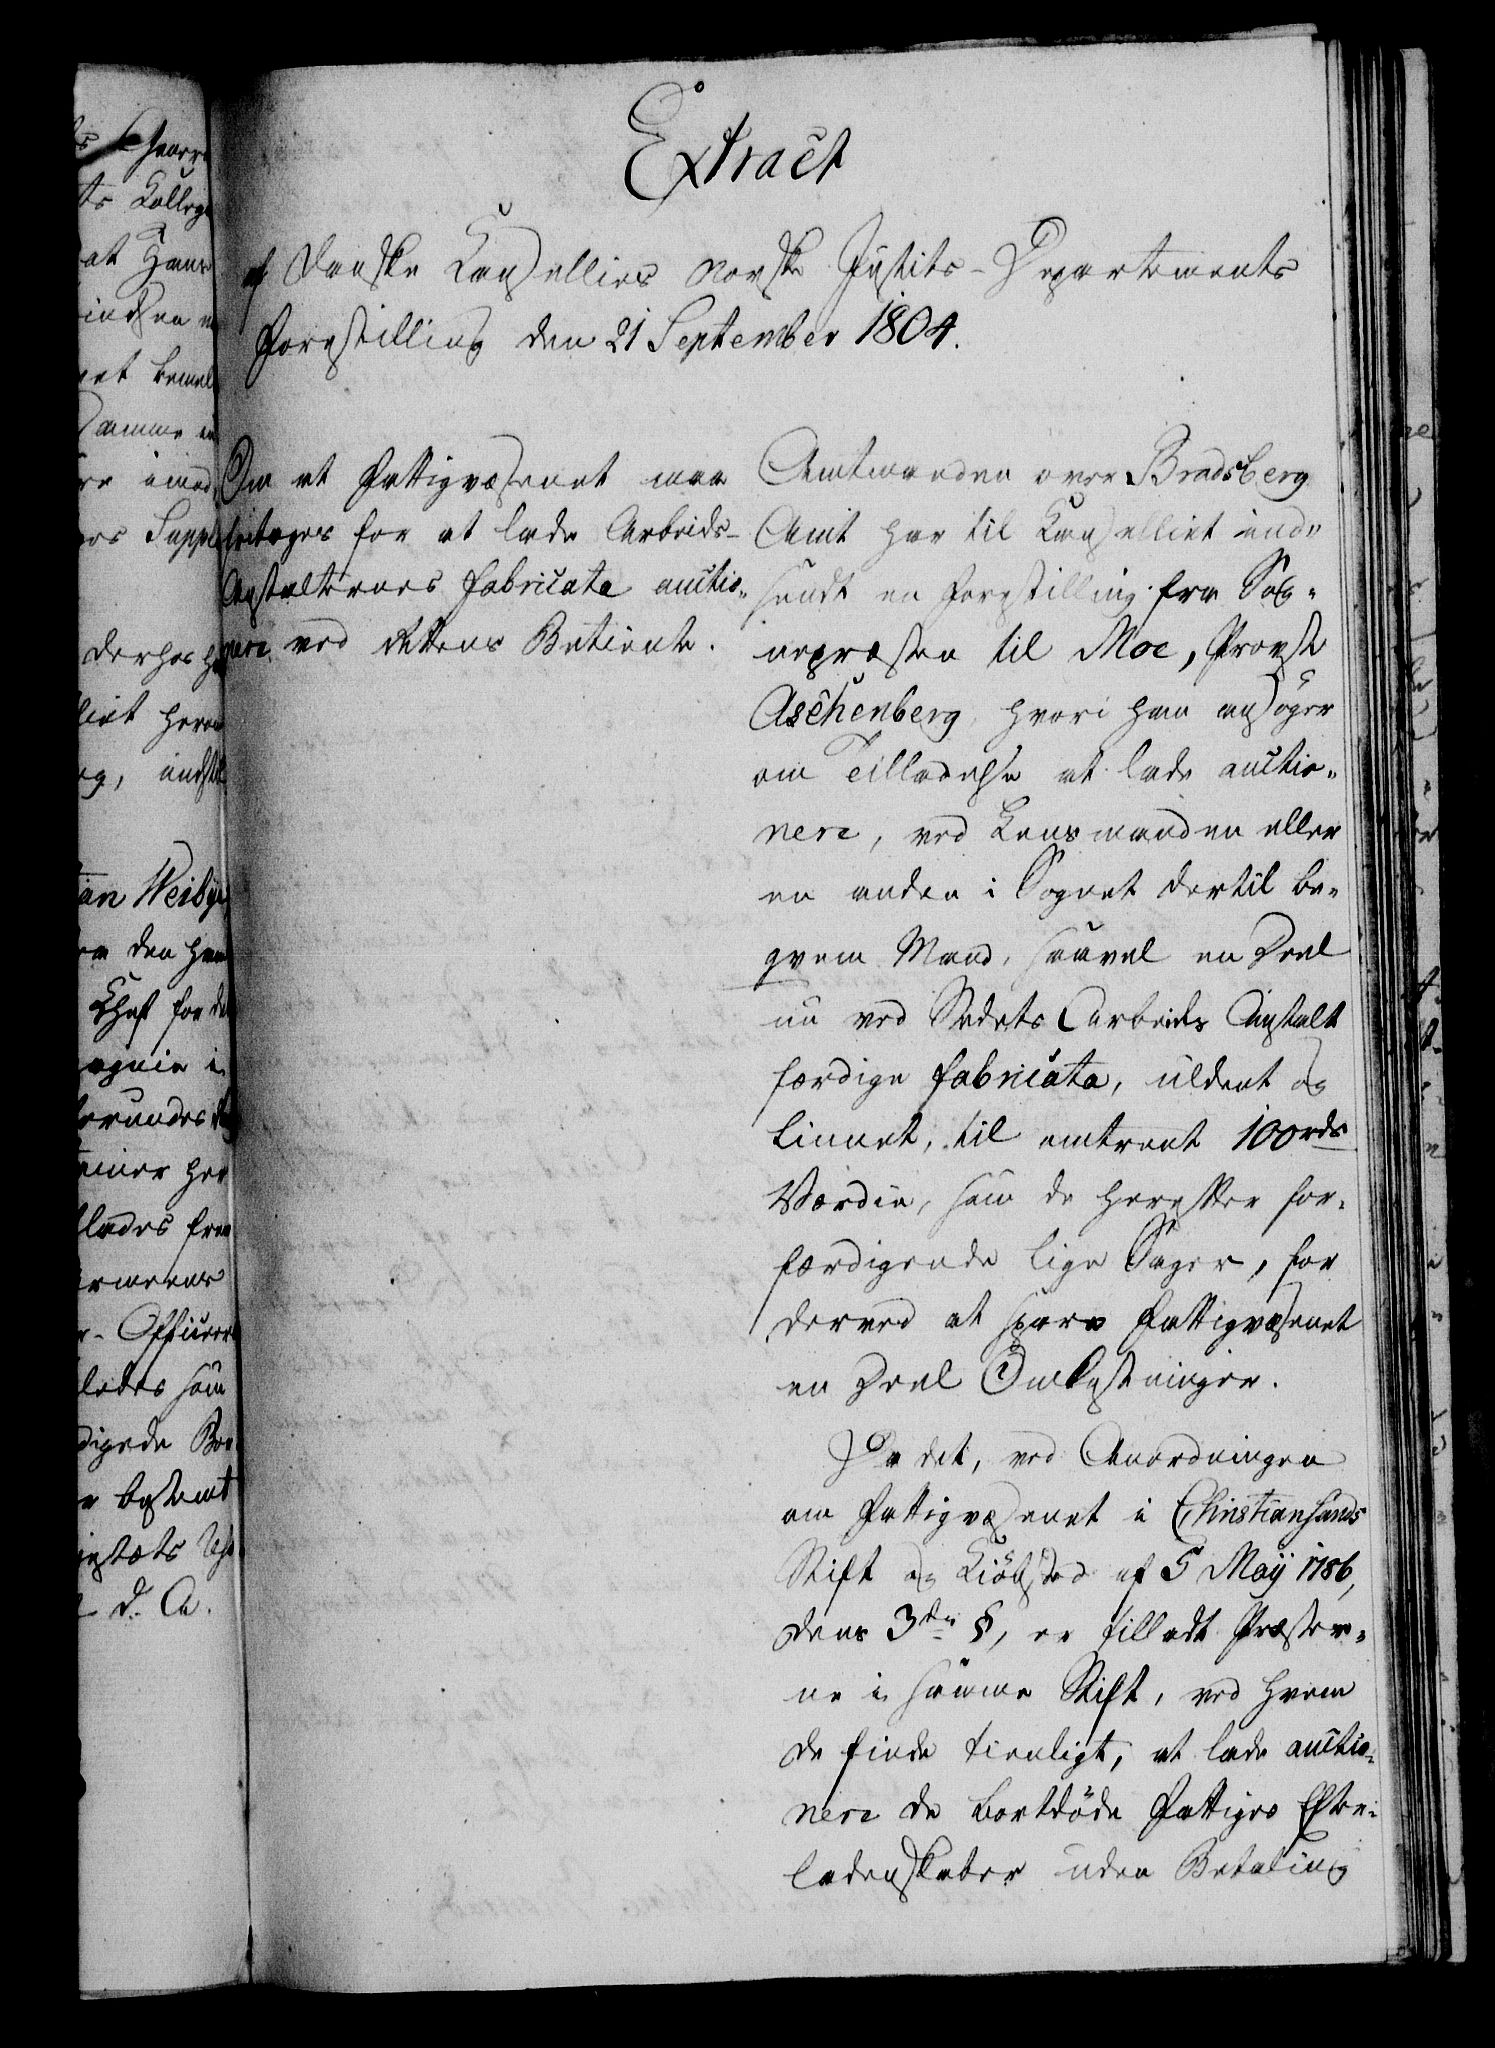 Extract
af Danske Kancelliets Norske Justits-Departements
Forestilling den 21 September 1804.
Om at Fattigvæsenet maa
fritages for at lade Arbeids-
Anstalternes fabricata auctio-
nere ved Rettens Betiente.
Amtmanden over Bradsberg
Amt har til Cancelliet ind-
sendt en Forestilling fra Sog-
nepræsten til Moe, Provst
Aschenberg, hvori han ansøger
om Tilladelse at lade auctio-
nere, ved Lensmanden eller
en anden i Sognet dertil be-
qvem Mand, saavel en Deel
nu ved Stedets Arbeids Anstalt
færdige fabricata, uldent og
linnet, til omtrent 100 rds
Værdie, som de herefter for-
færdigende lige Sager, for
derved at spare Fattigvæsenet
en Deel Omkostninger.
Da det, ved Anordningen
om Fattigvæsenet i Christiansands
Stift og Kiøbstad af 5 Maij 1786,
dens 3die §, er tilladt Præster-
ne i samme Stift, ved hvem
de finde tienligt, at lade auctio-
nere de bortdøde Fattiges Efter-
ladenskaber uden Betaling